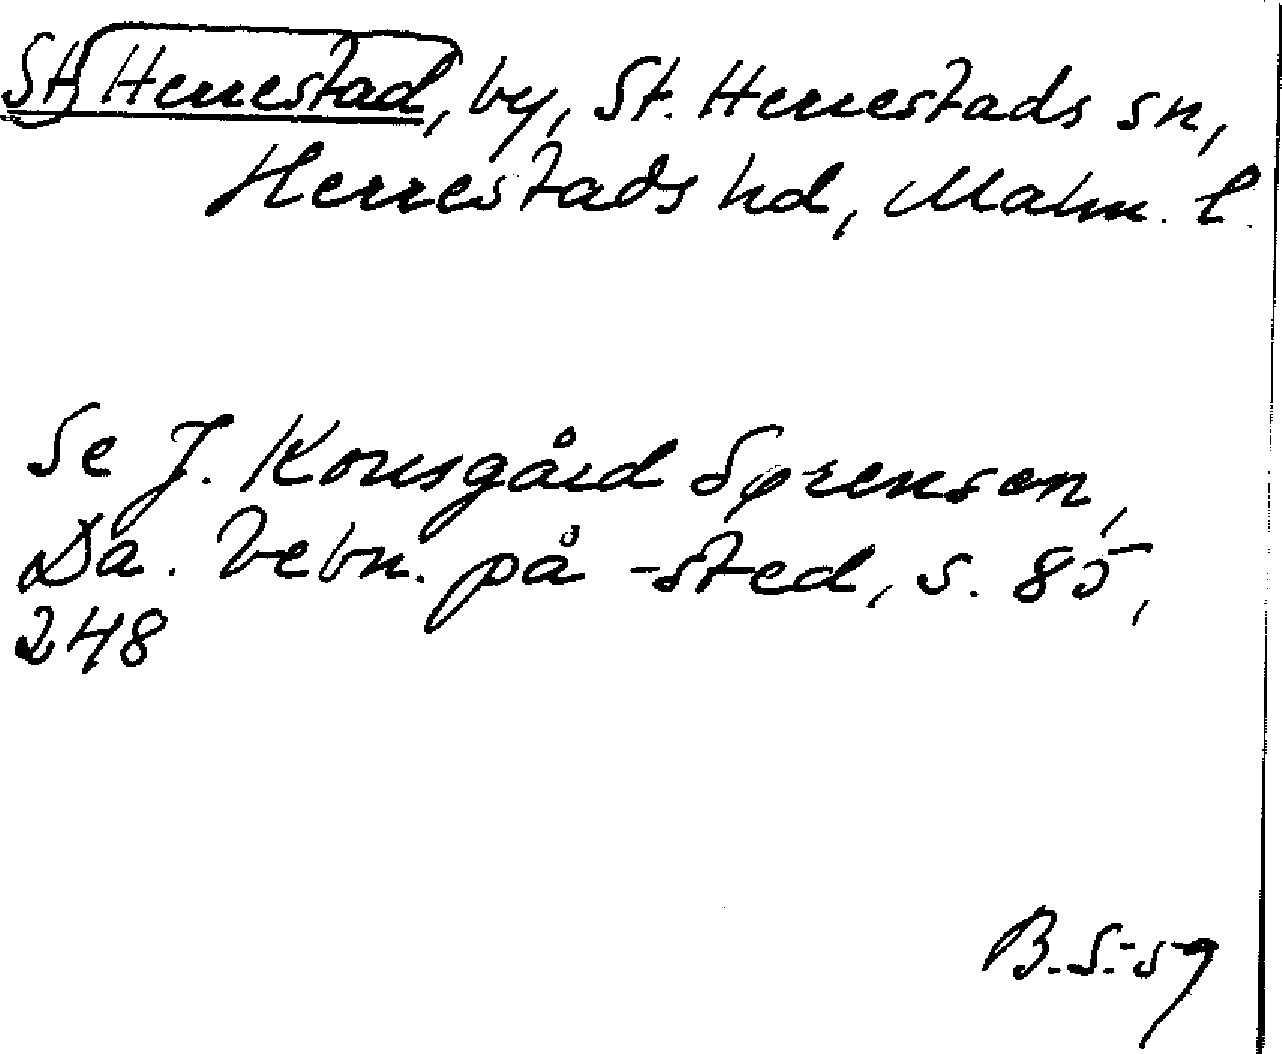 St. Herrestad, by, St. Herrestads sn,
Herrestads hd, Malm. l.
Se J. Kousgård Sørensen,
Da. bebn. på -sted, s. 85,
248
B.S.-59